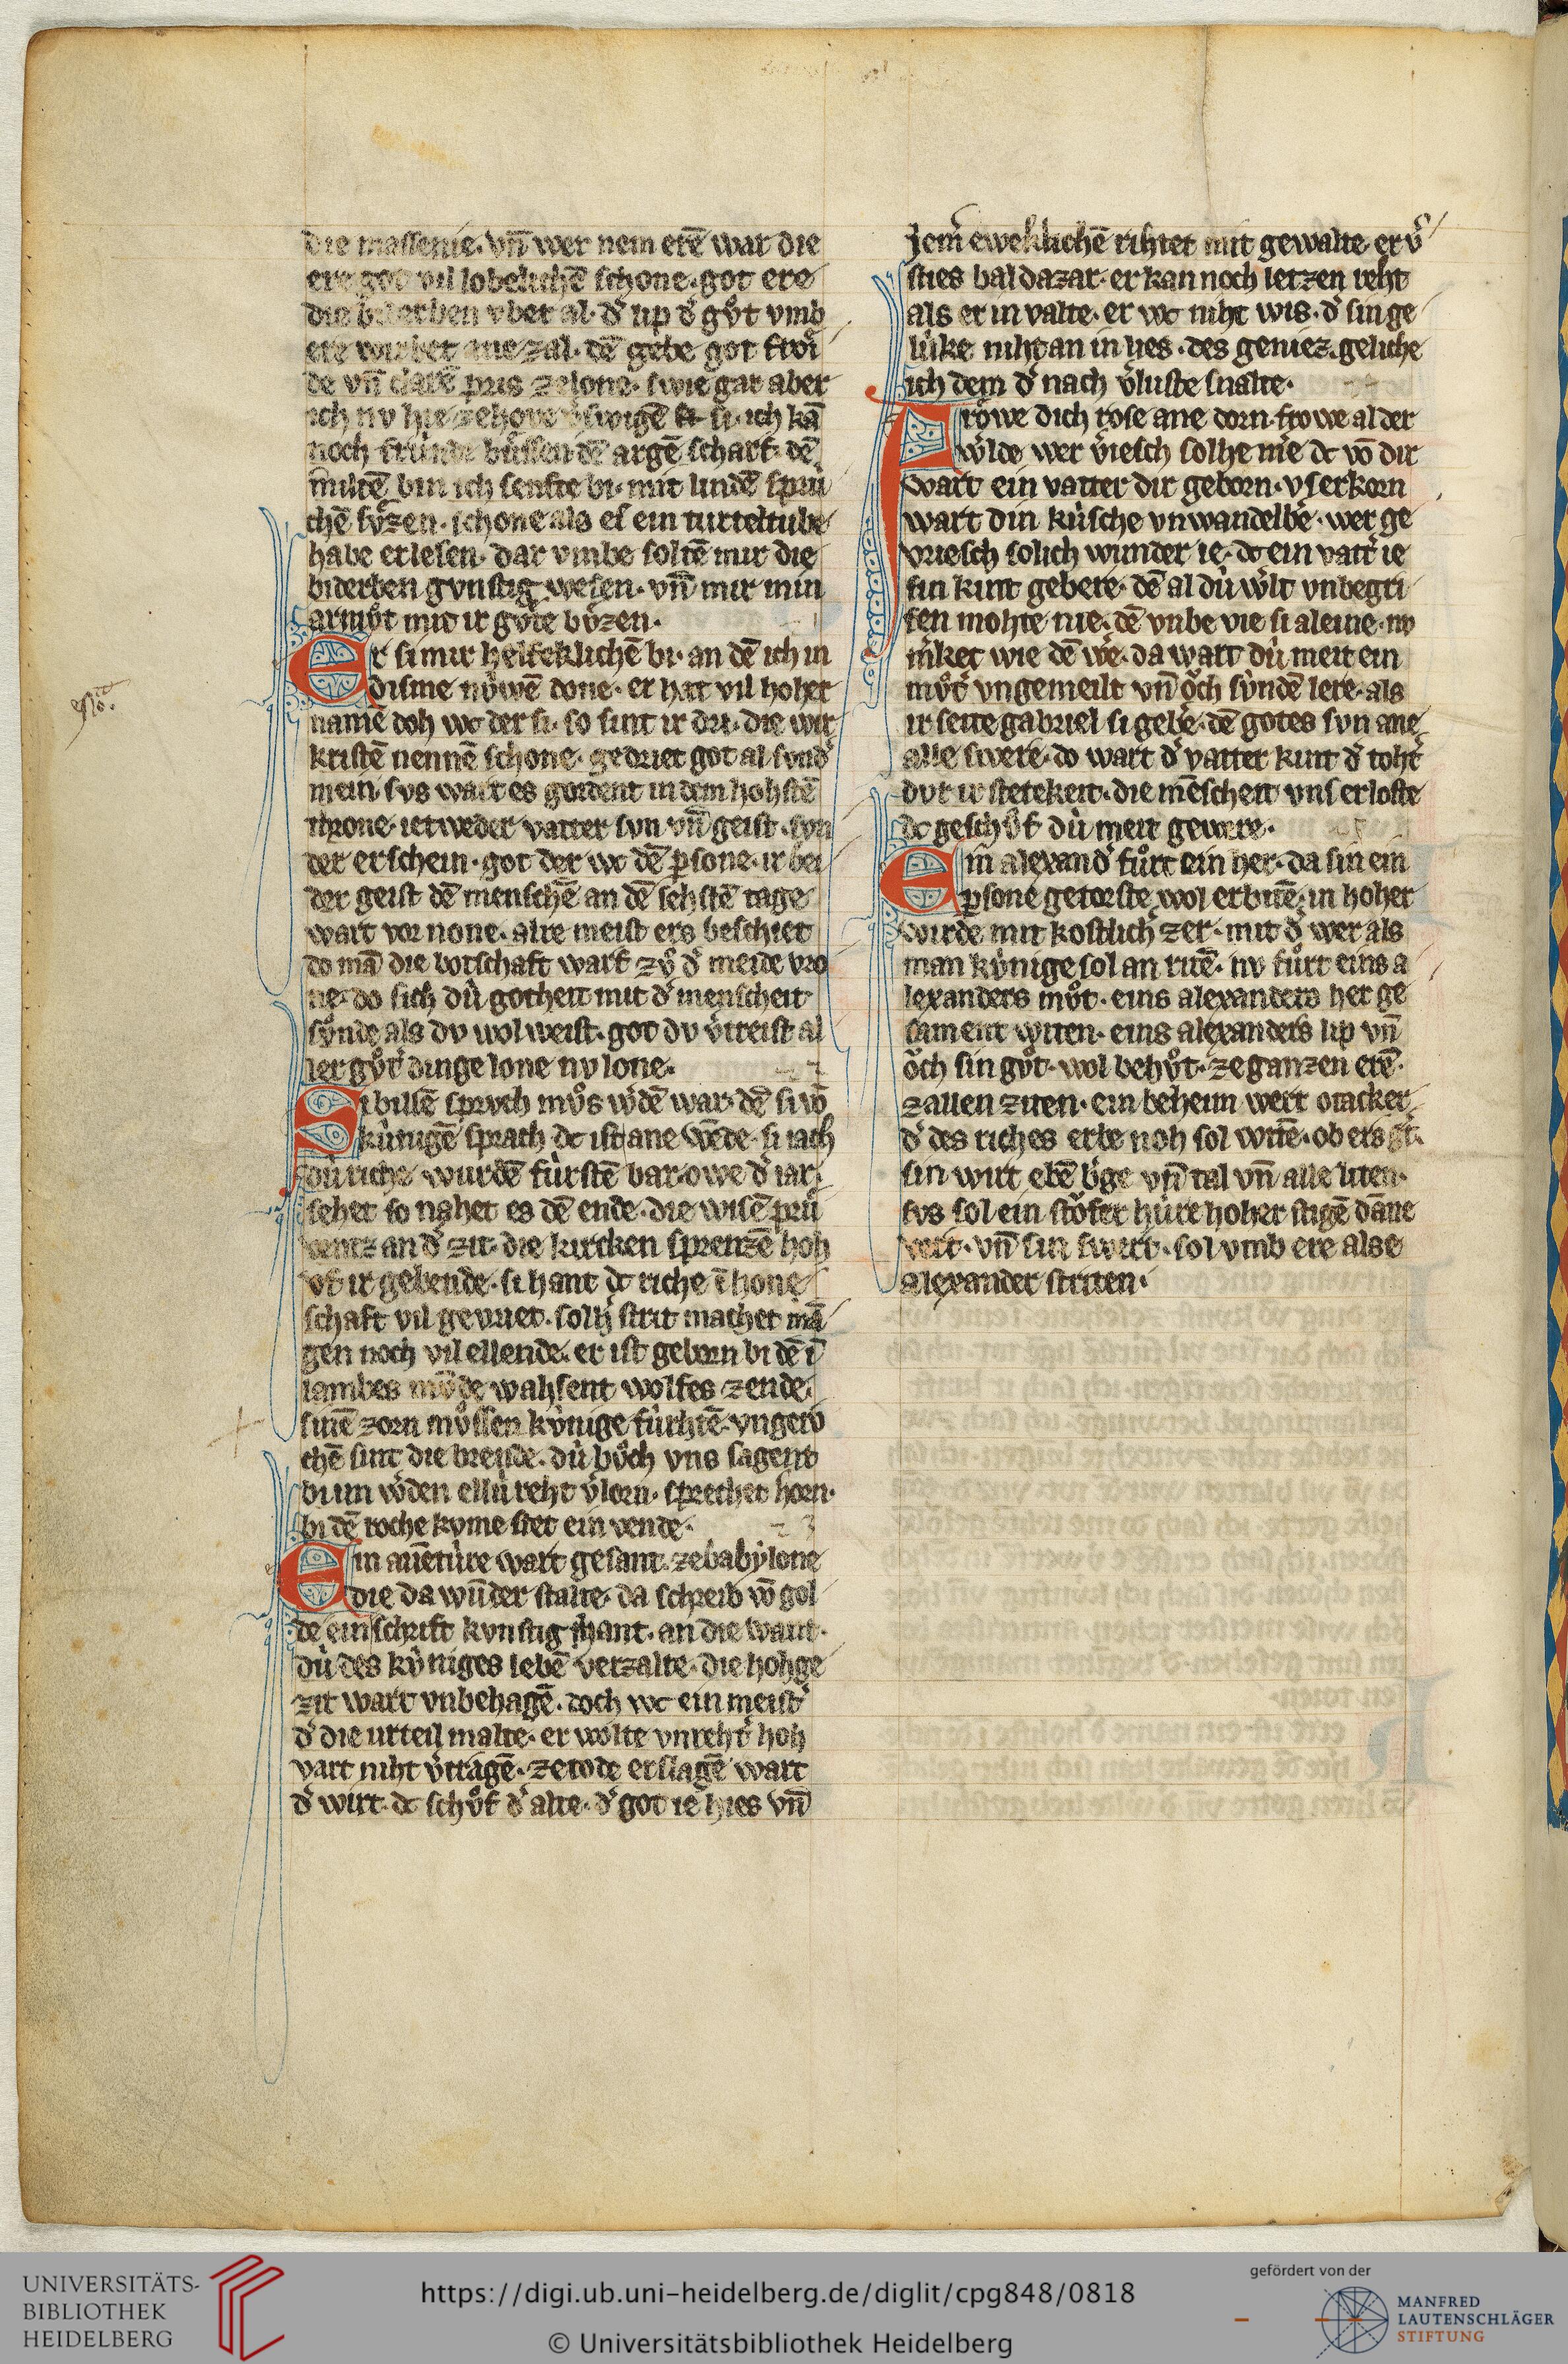 die massenie. vn̄ wer nem erē war die
ere got vil lobelichē schone. got ere
die biderben vber al. d᾽ lip d᾽ gůt vmb
ere wirbet ane zal. dē gebe got froͤi
de vn̄ clarē pris ze lone. swie gar aber
ich nv hie ze hove v᾽swigē si. ich kā
noch stùnde bùssen dē argē scharf. dē
miltē bin ich senfte bi. mit lindē sprù
chē sv̊zen. schone als es ein turteltube
habe erlesen. dar vmbe soltē mir die
biderben gvnstig wesen. vn̄ mir min
armv̊t mit ir gv̊te bv̊zen.
Er si mir helfeklichē bi. an dē ich in
disme nùwē done. er hat vil hoher
namē doh wc der si. so sint ir dri. die wir
kristē nennē schone. gedriet got al svnd᾽
mein. svs wart es gordent in dem hohstē
throne. ietweder vatter svn vn̄ geist. svn
der erschein. got der wc dē psone. ir bei
der geist dē menschē an dē sehstē tage
wart vor none. alre meist ers beschiet
do mā die botschaft warf zv̊ d᾽ meide vro
ne. do sich dù gotheit mit d᾽ menscheit
sv̊nde als dv wol weist. got dv v᾽treist al
ler gv̊t᾽ dinge lone nv lone.
Sibillē sprvch mv̊s w᾽dē war. dē si vō
kùnigē sprach dc ist ane wēde. si iach
dù riche wurdē fùrstē bar. owe d᾽ iar.
sehet so nahet es dē ende. die wisē prù
ventz an d᾽ zit. die kircken sprenzē hoh
vf ir gebende. si hant dc riche ī hone
schaft vil gevriet. solh strit machet mā
gen noch vil ellende. er ist geborn bi dē ī
lambes mv̊de wahsent wolfes zende.
sinē zorn mv̊ssen kùnige fùrhtē. vngero
chē sint die breisde. dù bv̊ch vns sagent
bi im w᾽den ellù reht v᾽lorn. sprechet horn.
bi dē roche kvme stet ein vende.
Ein auētùre wart gesant. ze babylone
die da wūder stalte. da schreib vō gol
de ein schrift kvnstig hant. an die want.
dù des kùniges lebē verzalte. die hohge
zit wart vnbehagē. doch wc ein meist᾽
d᾽ die urteil malte. er wolte vnreht᾽ hoh
vart niht v᾽tragē. ze tode erslagē wart
d᾽ wirt. dc schv̊f d᾽ alte. d᾽ got ie hies vn̄
iem᾽ eweklichē rihtet mit gewalte. er v᾽
sties baldazar. er kan noch letzen reht
als er in valte. er wc niht wis. d᾽ sin ge
lùke niht an in lies. des geniez. geliche
ich dem d᾽ nach v᾽luste snalte.
Froͤwe dich rose ane dorn. frowe al der
w᾽lde wer v᾽iesch solhe me᾽ dc vō dir
wart ein vatter dir geborn. vserkorn
wart din kùsche vnwandelbe᾽. wer ge
vriesch solich wunder ie. dc ein vatt᾽ ie
sin kint gebere. dē al dù w᾽lt vnbegri
fen mohte nie. dē vnbe vie si aleine. nv
m᾽ket wie dē we᾽. da wart dù meit ein
mv̊t᾽ vngemeilt vn̄ oͮch sùndē lere. als
ir seite gabriel si gebe᾽. dē gotes svn ane
alle swere. do wart d᾽ vatter kint d᾽ toht᾽
dvr ir stetekeit. die mēscheit vns erloste
dc geschv̊f dù meit gewere.
Ein alexand᾽ fv̊rt ein her. da sin ein
psone getorste wol erbitē. in hoher
wirde mit kostlich᾽ zer. mit d᾽ wer als
man kùnige sol an ritē. nv fv̊rt eins a
lexanders mv̊t. eins alexanders her ge
sament witen. eins alexanders lip vn̄
oͮch sin gv̊t. wol behv̊t. ze ganzen erē.
zallen ziten. ein beheim wert otacker
d᾽ des riches erbe noh sol witē. ob ers gt᾽.
sin wirt ebē b᾽ge vn̄ tal vn̄ alle liten.
svs sol ein stoͮfer hùre hoher stigē dāne
vert. vn̄ sin swert. sol vmb ere alse
alexander striten.
UNIVERSITÄTS-
BIBLIOTHEK
HEIDELBERG
https://digi.ub.uni-heidelberg.de/diglit/cpg848/0818
© Universitätsbibliothek Heidelberg
gefördert von der
MANFRED
LAUTENSCHLÄGER
STIFTUNG